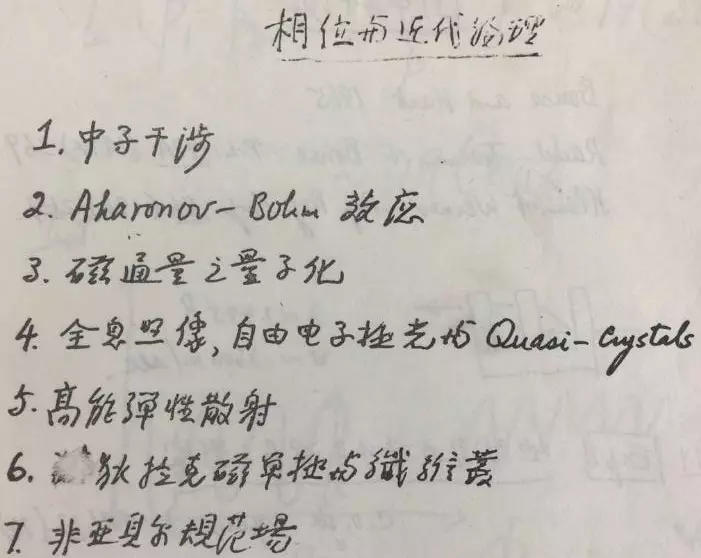 相位与近代物理
1. 中子干涉
2. Aharonov-Bohm 效应
3. 磁通量之量子化
4. 全息照像, 自由电子拯光与 Quasi-Crystals
5. 高能弹性散射
6. 狄拉克磁单极与纖维叢
7. 非亚贝尔规范場